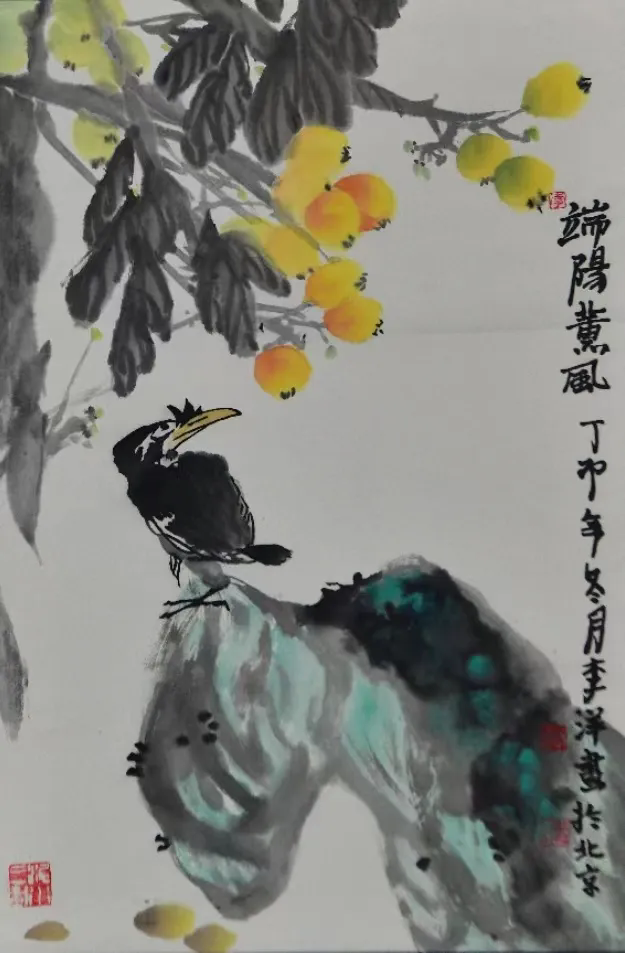 端陽薰風
丁卯年冬月李洋畫於北京